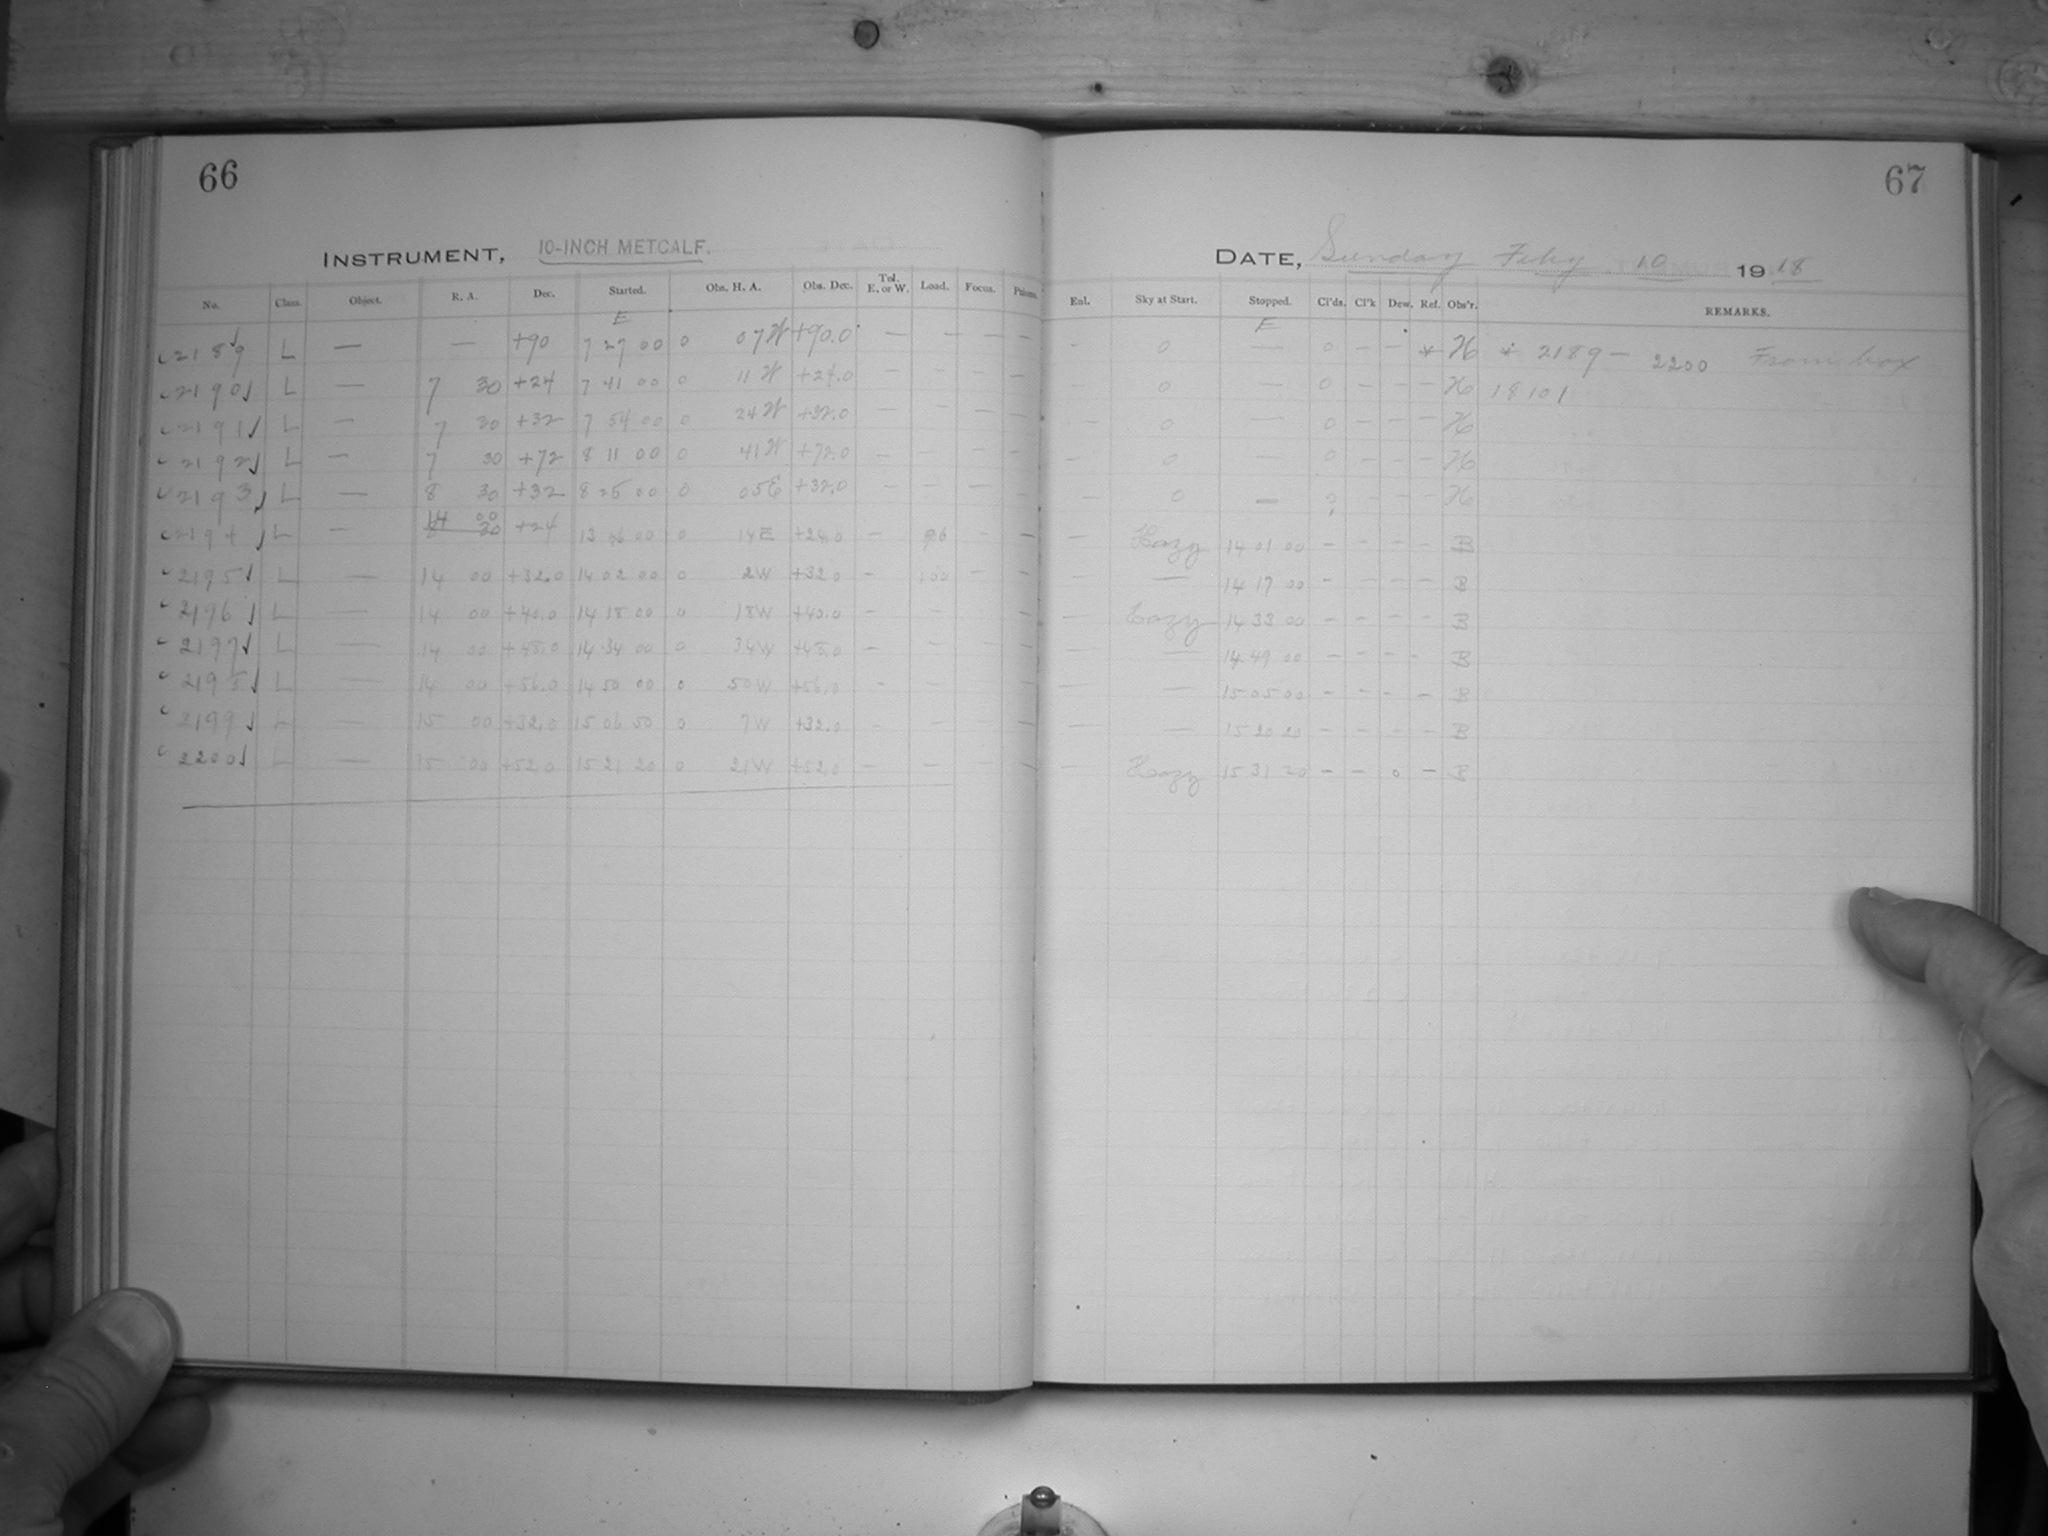 66
INSTRUMENT, 10-INCH METCALF.
No. Class. Object. R. A. Dec. Started. Obs. H. A. Obs. Dec. Tel. E. or W. Load. Focus. Prisms.
E
2189 L — — +90 7 27 00 0 07 W +90.0 — — — —
2190 L — 7 30 +24 7 41 00 0 11 W +24.0 — — — —
2191 L — 7 30 +32 7 54 00 0 24 W +32.0 — — — —
2192 L — 7 30 +72 8 11 00 0 41 W +72.0 — — — —
2193 L — 8 30 +32 8 25 00 0 05 E +32.0 — — — —
14 00
2194 L — 8 30 +24 13 46 00 0 14 E +24.0 — 96 — —
2195 L — 14 00 +32.0 14 02 00 0 2 W +32.0 — 100 — —
2196 L — 14 00 +40.0 14 18 00 0 18 W +40.0 — — — —
2197 L — 14 00 +48.0 14 34 00 0 34 W +48.0 — — — —
2198 L — 14 00 +56.0 14 50 00 0 50 W +56.0 — — — —
2199 L — 15 00 +32.0 15 06 50 0 7 W +32.0 — — — —
2200 L — 15 00 +52.0 15 21 20 0 21 W +52.0 — — — —
67
DATE, Sunday Feby 10 1918
Enl. Sky at Start. Stopped. Cl'ds. Cl'k Dew. Ref. Obs'r. REMARKS.
E
— 0 — 0 — — * H * 2189 — 2200 From box
— 0 — 0 — — — H 18101
— 0 — 0 — — — H
— 0 — 0 — — — H
— 0 — ? — — — H
— Hazy 14 01 00 — — — — B
— — 14 17 00 — — — — B
— Hazy 14 33 00 — — — — B
— — 14 49 00 — — — — B
— — 15 05 00 — — — — B
— — 15 20 20 — — — — B
— Hazy 15 31 20 — — 0 — B